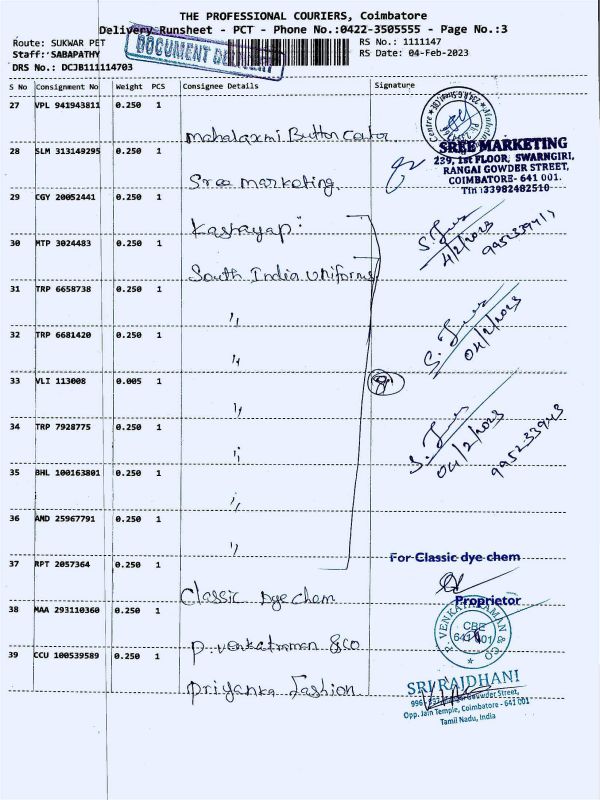 THE PROFESSIONAL COURIERS, Coimbatore
Delivery Runsheet - PCT - Phone No.:0422-3505555 - Page No.:3
Route: SUKWAR PET
RS No.: 1111147
Staff: SABAPATHY
RS Date: 04-Feb-2023
DRS No.: DCJB111114703
DOCUMENT DELIVERY
S No Consignment No Weight PCS Consignee Details Signature
27 VPL 941943811 0.250 1
Mahalaxmi Button Center
28 SLM 313149295 0.250 1
Sree Marketing.
SREE MARKETING
239, 1st FLOOR, SWARNGIRI,
RANGAI GOWDER STREET,
COIMBATORE- 641 001.
Tin :33982482510
29 CGY 20052441 0.250 1
Kashayap
30 MTP 3024483 0.250 1
South India Uniforms
4/2/2023
31 TRP 6658738 0.250 1
"
32 TRP 6681420 0.250 1
"
04/2/2023
33 VLI 113008 0.005 1
"
8
34 TRP 7928775 0.250 1
"
04/2/2023
9952339413
35 BHL 100163801 0.250 1
"
36 AMD 25967791 0.250 1
"
37 RPT 2057364 0.250 1
Classic Dye Chem
For Classic dye chem
Proprietor
38 MAA 293110360 0.250 1
P. Venkatraman & Co
P. VENKATARAMAN & CO
CBE
641 001
39 CCU 100539589 0.250 1
Priyanka Fashion
SRI RAJDHANI
Gowder Street,
Opp. Jain Temple, Coimbatore - 641 001
Tamil Nadu, India